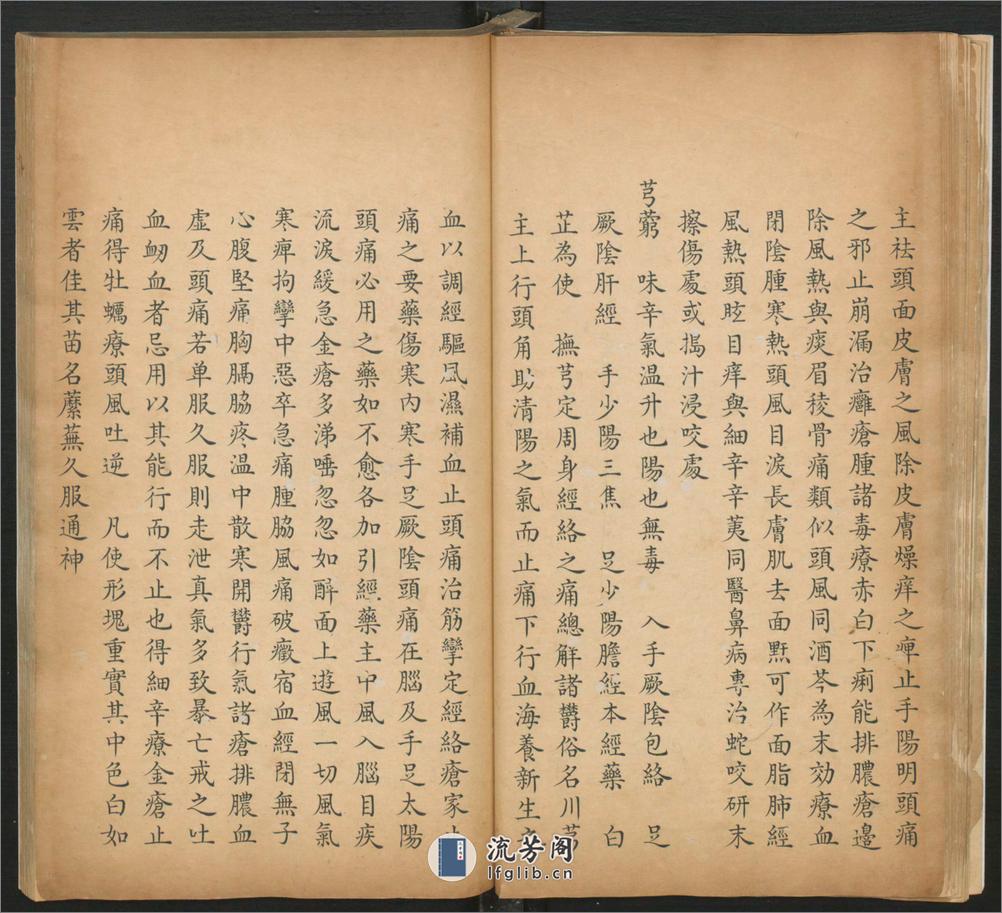 主祛頭面皮膚之風除皮膚燥痒之痺止手陽明頭痛
之邪止崩漏治癰瘡腫諸毒療赤白下痢能排膿瘡邉
除風熱與痰眉稜骨痛類似頭風同酒芩為末効療血
閉陰腫寒熱頭風目淚長膚肌去面䵟可作面脂肺經
風熱頭眩目痒與細辛辛荑同醫鼻病專治蛇咬研末
擦傷處或搗汁浸咬處
芎藭 味辛氣温升也陽也無毒 入手厥陰包絡 足
厥陰肝經 手少陽三焦 足少陽膽經本經藥 白
芷為使 撫芎定周身經絡之痛總解諸欝俗名川芎
主上行頭角助清陽之氣而止痛下行血海養新生之
血以調經驅風濕補血止頭痛治筋攣定經絡瘡家止
痛之要藥傷寒內寒手足厥陰頭痛在腦及手足太陽
頭痛必用之藥如不愈各加引經藥主中風入腦目疾
流淚緩急金瘡多涕唾忽忽如醉面上遊風一切風氣
寒痺拘攣中惡卒急痛腫脇風痛破癥宿血經閉無子
心腹堅痛胸膈脇疼温中散寒開欝行氣諸瘡排膿血
虛及頭痛若单服久服則走泄真氣多致暴亡戒之吐
血衂血者忌用以其能行而不止也得細辛療金瘡止
痛得牡蠣療頭風吐逆 凡使形塊重實其中色白如
雲者佳其苗名蘼蕪久服通神
流芳阁
lfglib.cn